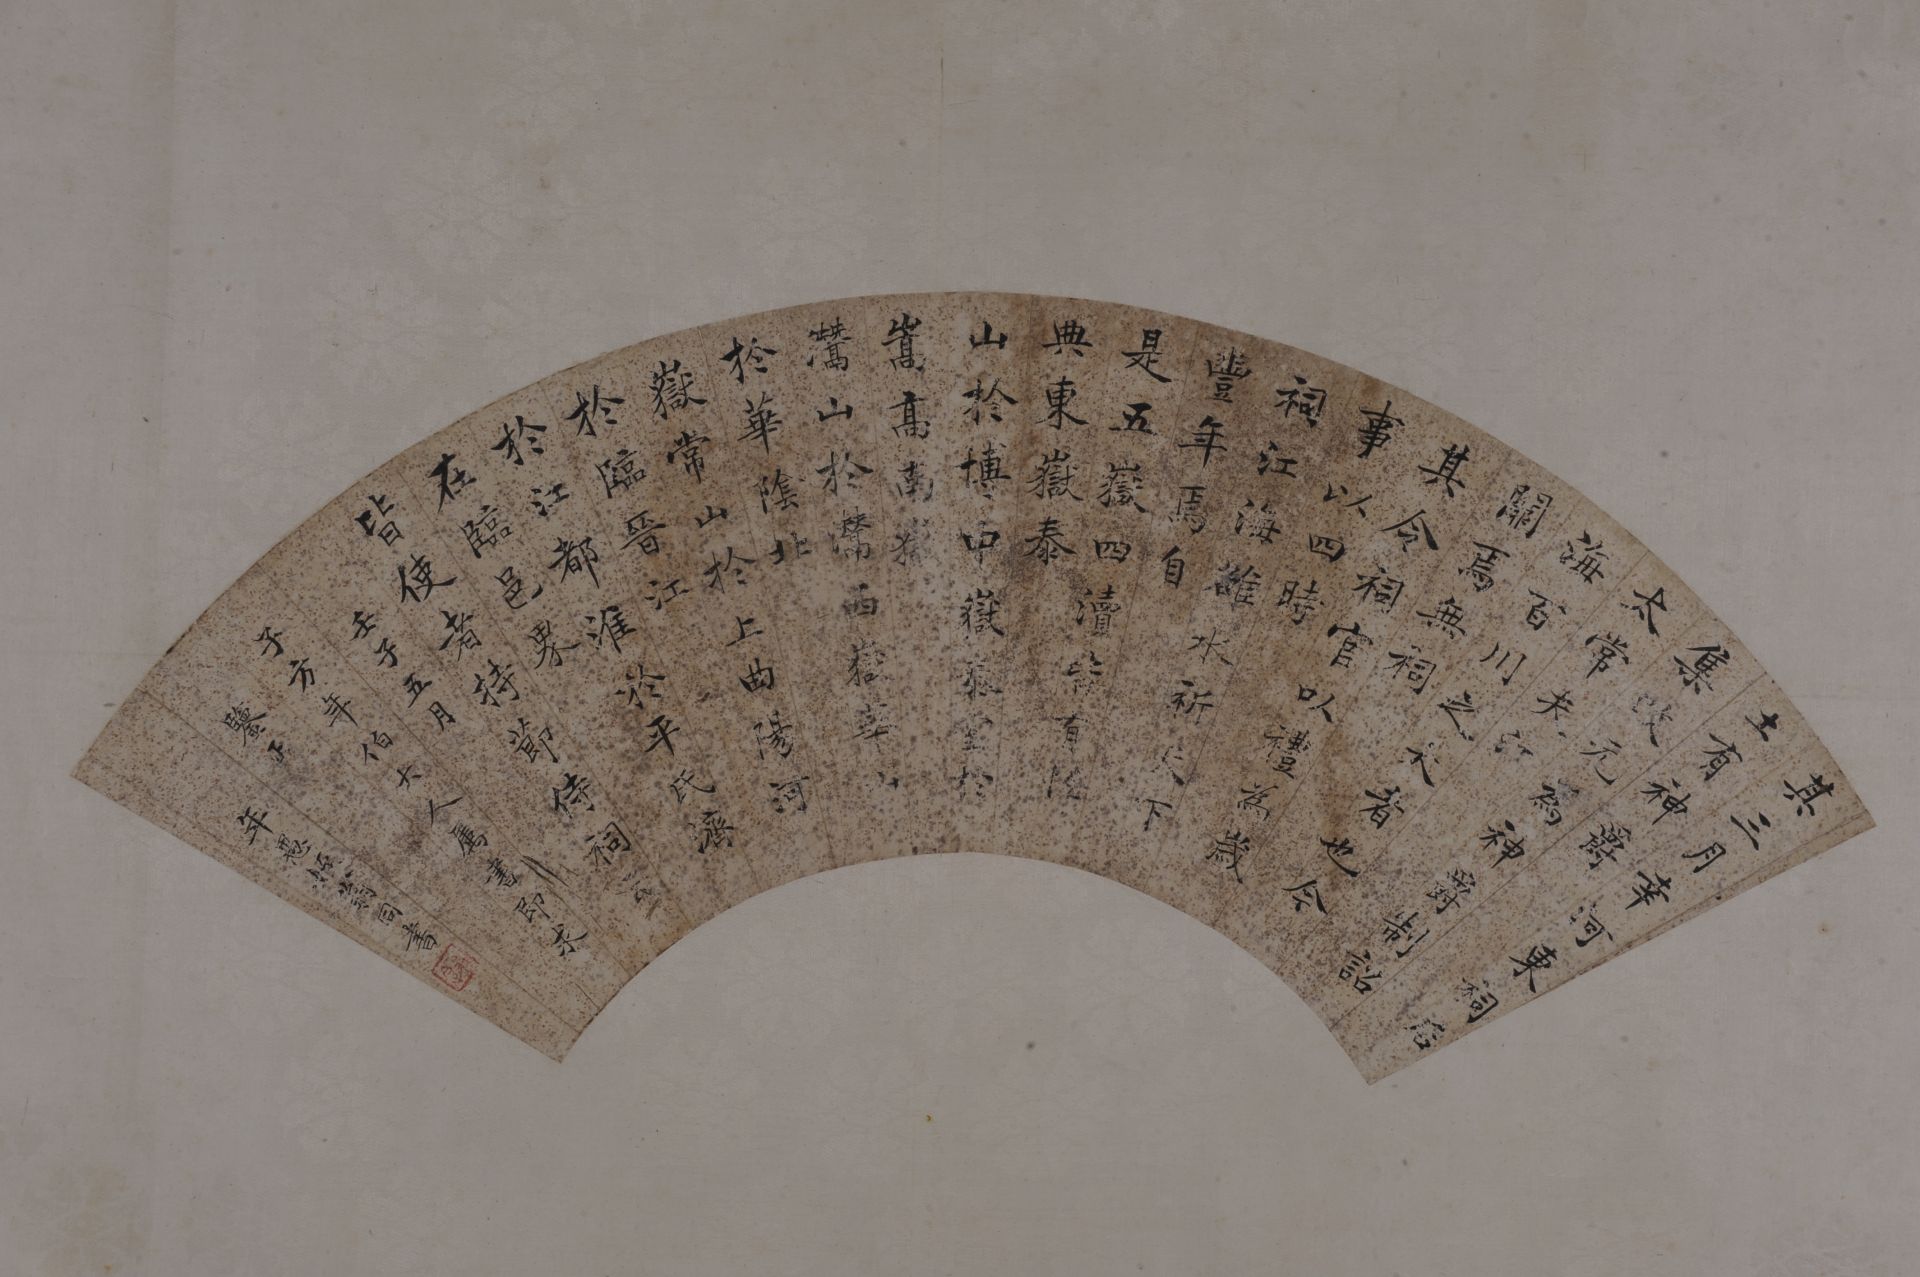 其三月幸河東祠后
土有神爵
集改元為神爵制詔
太常夫江
海百川之大者也今
闕焉無祠
其令祠官以禮為歲
事以四時
祠江海雒水祈天下
豐年焉自
是五嶽四瀆皆有
典東嶽泰
山於博中嶽泰室於
嵩高南嶽
灊山於灊西嶽華山
於華陰北
嶽常山於上曲陽河
於臨晉江
於江都淮於平氏濟
在臨邑界
皆使者持節侍祠云
壬子五月
子方年伯大人屬書即求
鑒正
年愚姪翁同書